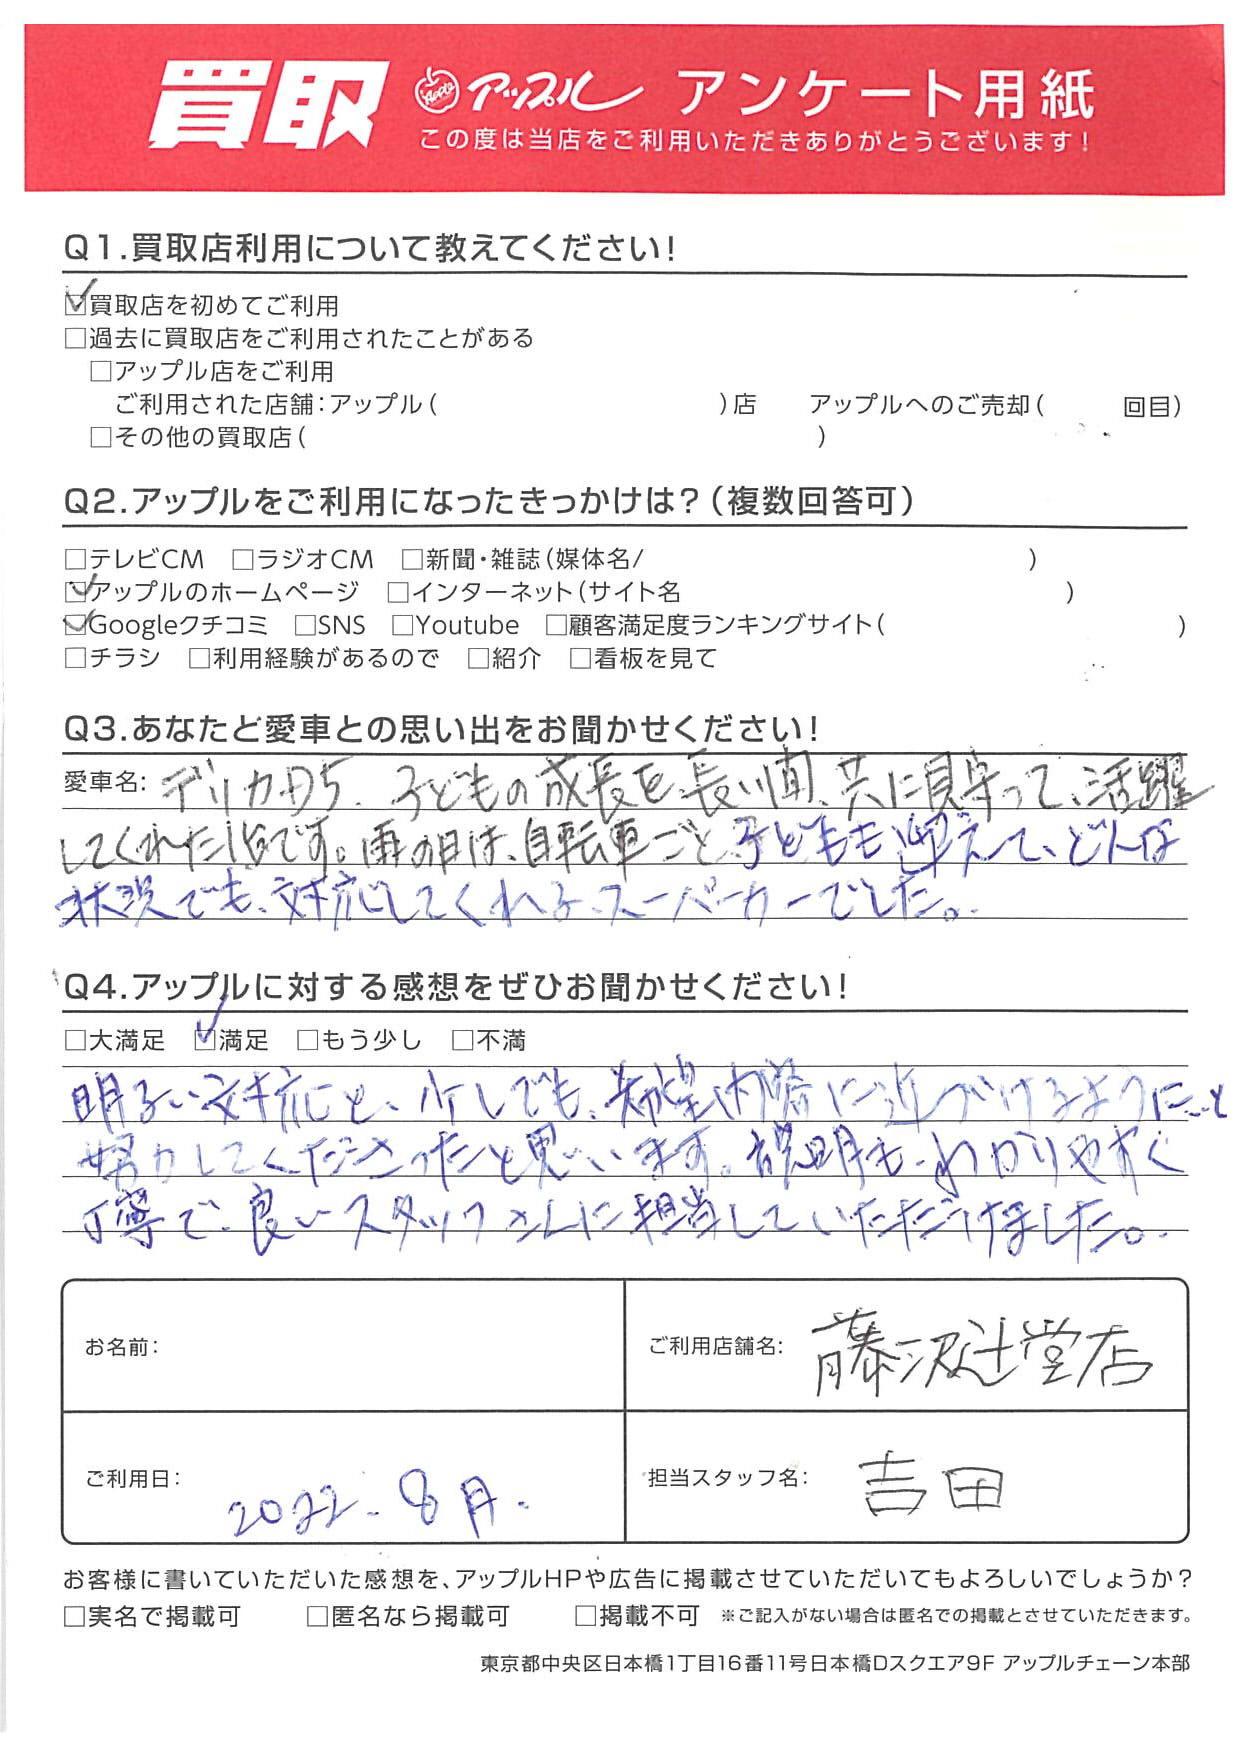 買取 Apple アップル アンケート用紙
この度は当店をご利用いただきありがとうございます！
Q1.買取店利用について教えてください！
☑買取店を初めてご利用
□過去に買取店をご利用されたことがある
□アップル店をご利用
ご利用された店舗：アップル（ ）店 アップルへのご売却（ 回目）
□その他の買取店（ ）
Q2.アップルをご利用になったきっかけは？（複数回答可）
□テレビCM □ラジオCM □新聞・雑誌（媒体名/ ）
☑アップルのホームページ □インターネット（サイト名 ）
☑Googleクチコミ □SNS □Youtube □顧客満足度ランキングサイト（ ）
□チラシ □利用経験があるので □紹介 □看板を見て
Q3.あなたと愛車との思い出をお聞かせください！
愛車名： デリカD5. 子どもの成長を、長い間、共に見守って、活躍
してくれた1台です。雨の日は、自転車ごと子どもを迎えて、どんな
状況でも、対応してくれる、スーパーカーでした。
Q4.アップルに対する感想をぜひお聞かせください！
□大満足 ☑満足 □もう少し □不満
明るい対応と、少しでも、希望価格に近づけるように、と
努力してくださったと思います。説明も、わかりやすく
丁寧で、良いスタッフさんに担当していただけました。
お名前：
ご利用店舗名： 藤沢辻堂店
ご利用日： 2022. 8月.
担当スタッフ名： 吉田
お客様に書いていただいた感想を、アップルHPや広告に掲載させていただいてもよろしいでしょうか？
□実名で掲載可 □匿名なら掲載可 □掲載不可 ※ご記入がない場合は匿名での掲載とさせていただきます。
東京都中央区日本橋1丁目16番11号日本橋Dスクエア9F アップルチェーン本部